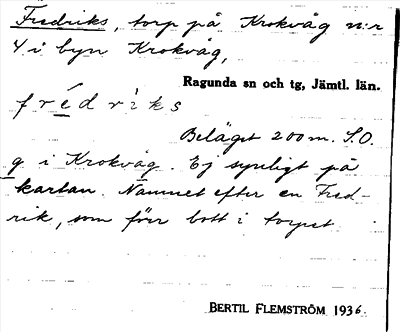 Fredriks, torp på Krokvåg n:r
4 i byn Krokvåg,
Ragunda sn och tg, Jämtl. län.
fré̱driks
Beläget 200 m. S.O.
g. i Krokvåg. Ej synligt på
kartan. Namnet efter en Fred-
rik, som förr bott i torpet.
BERTIL FLEMSTRÖM 1936.